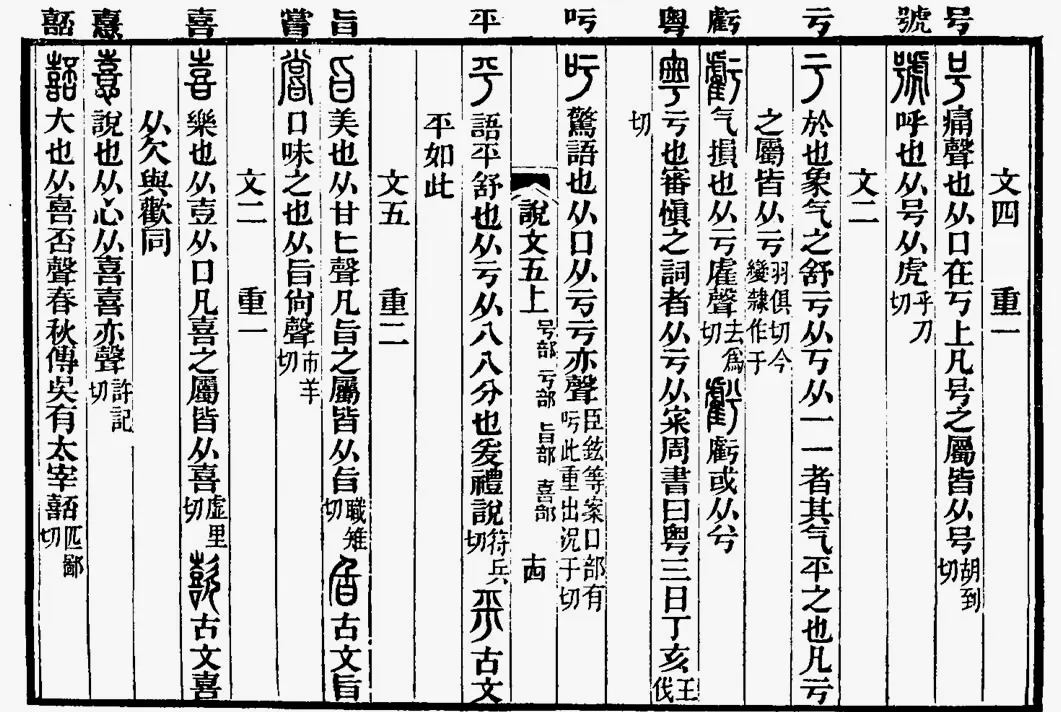 号 號 亏 虧 粤 吁 平 旨 嘗 喜 憙 嚭
文四 重一
号 痛聲也从口在丂上凡号之屬皆从号胡到切
號 呼也从号从虎乎刀切
文二
亏 於也象气之舒亏从丂从一一者其气平之也凡亏
之屬皆从亏羽俱切今變隸作于
虧 气損也从亏雐聲去爲切 虧 虧或从兮
粤 亏也審愼之詞者从亏从宷周書曰粤三日丁亥王伐
切
吁 驚語也从口从亏亏亦聲臣鉉等案口部有吁此重出況于切
說文五上 号部 亏部 旨部 喜部 十四
平 語平舒也从亏从八八分也爰禮說符兵切 平 古文
平如此
文五 重二
旨 美也从甘匕聲凡旨之屬皆从旨職雉切 旨 古文旨
嘗 口味之也从旨尙聲市羊切
文二 重一
喜 樂也从壴从口凡喜之屬皆从喜虛里切 歖 古文喜
从欠與歡同
憙 說也从心从喜喜亦聲許記切
嚭 大也从喜否聲春秋傳吳有太宰嚭匹鄙切